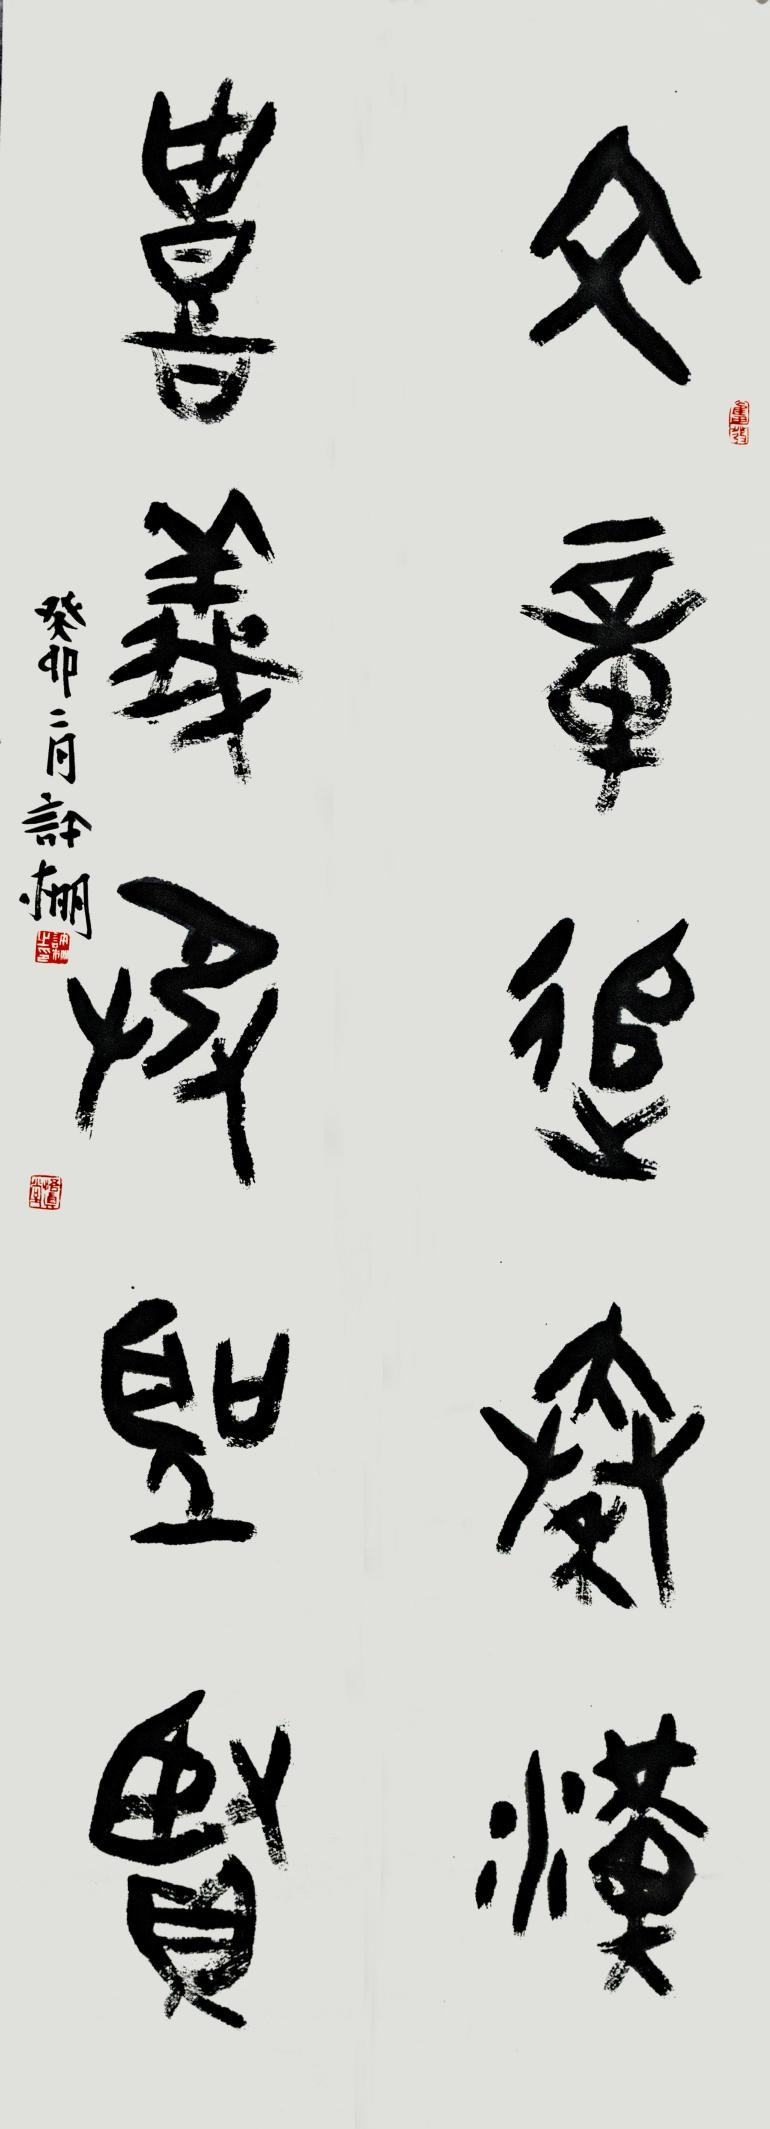 文章追秦漢
義聖賢
癸卯二月許棚